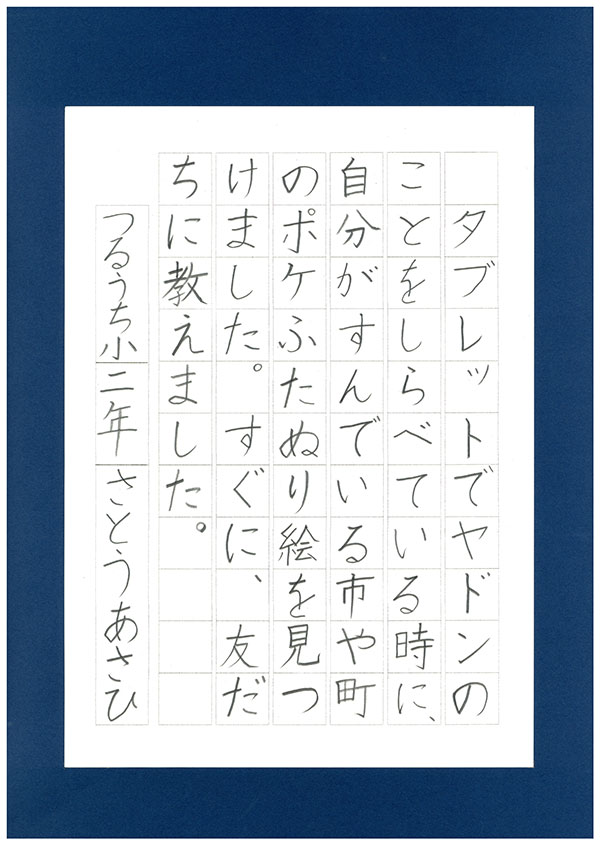 タブレットでヤドンの
ことをしらべている時に、
自分がすんでいる市や町
のポケふたぬり絵を見つ
けました。すぐに、友だ
ちに教えました。
つるうち小二年 さとうあさひ